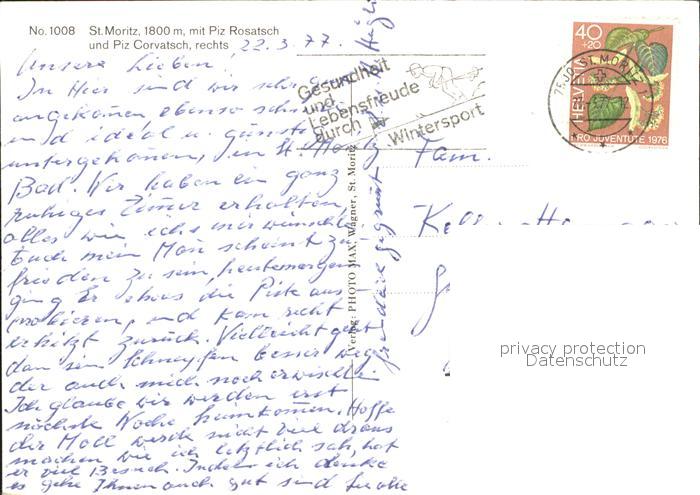 No. 1008 St. Moritz, 1800 m, mit Piz Rosatsch
und Piz Corvatsch, rechts 22.3.77.
Unsere Lieben!
In Hier sind wir sehr gut
angekommen, ebenso schnell
und ideal u. günstig
untergekommen, in St. Moritz
Bad. Wir haben ein ganz
ruhiges Zimer erhalten,
alles wie ichs mir wünschte
Auch mein Man scheint zu
frieden zu sein, heutemorgen
ging Er etwas die Piste aus
probieren, und kam recht
erhitzt zurück. Vielleicht geht
dan sein Schnupfen besser weg
der auch mich noch erwischte.
Ich glaube wir werden erst
nächste Woche heimkommen. Hoffe
der Moll werde nicht viel draus
machen wie ich letztlich sah, hat
er viel Besuch. Indem ich denke
es gehe Ihnen auch gut sind Sie alle
gegrüsst
Verlag: PHOTO MAX, Wagner, St. Moritz
Gesundheit
und
Lebensfreude
durch
Wintersport
ST. MORITZ
40
+20
HELVETIA
PRO JUVENTUTE 1976
Fam.
privacy protection
Datenschutz